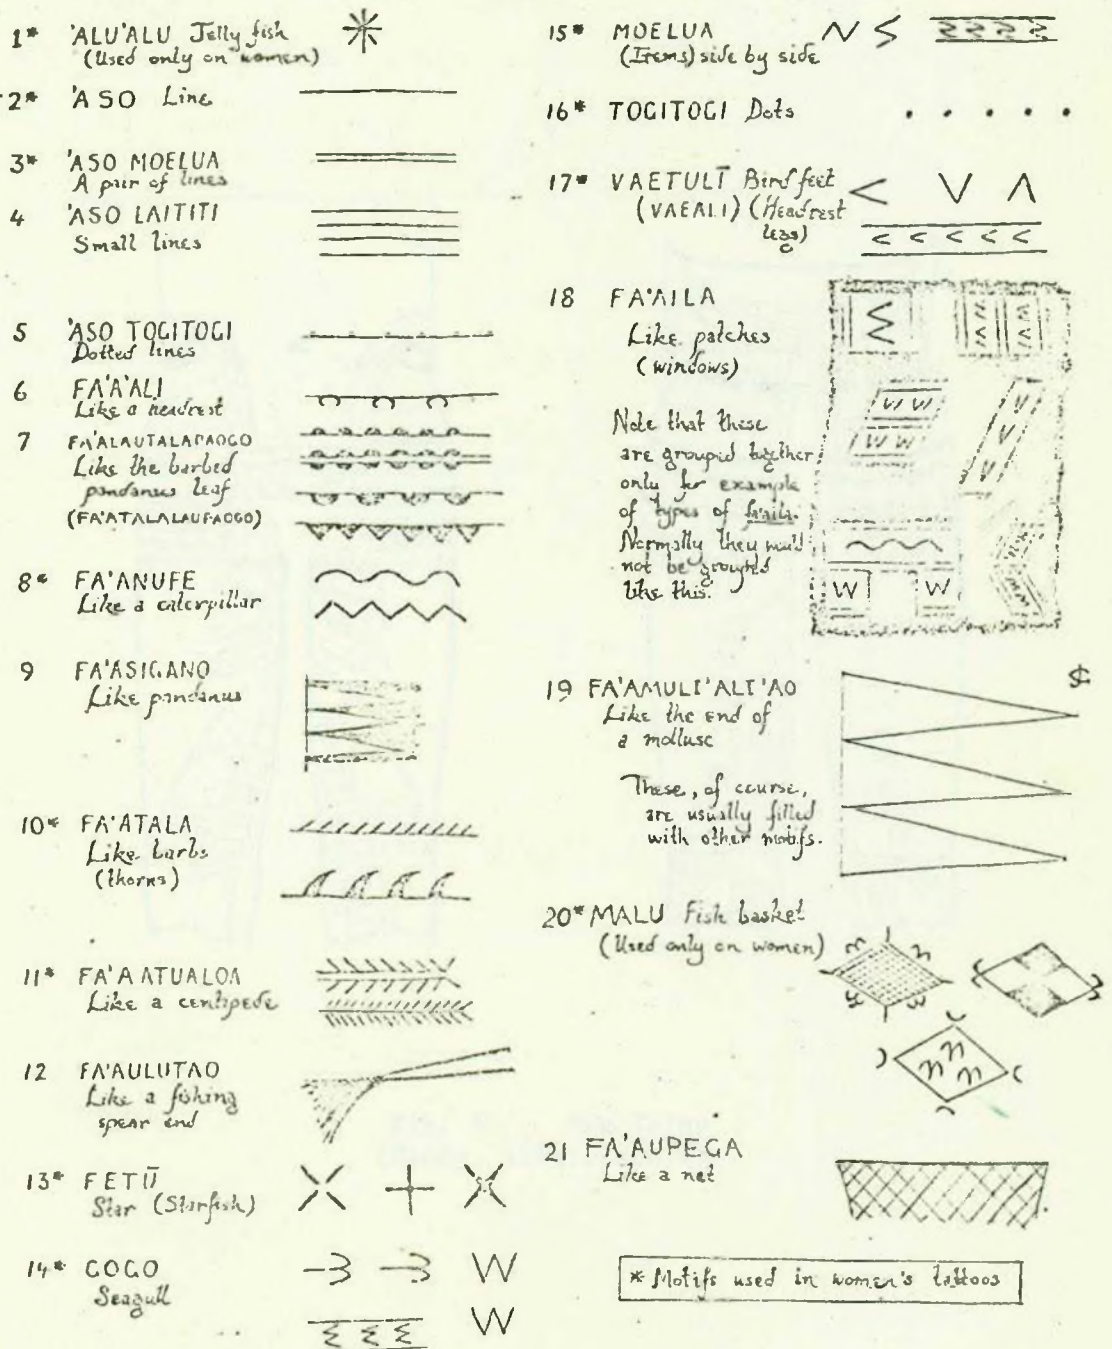 1* 'ALU'ALU Jelly fish
(Used only on women)
2* 'ASO Line
3* 'ASO MOELUA
A pair of lines
4 'ASO LAITITI
Small lines
5 'ASO TOGITOGI
Dotted lines
6 FA'A'ALI
Like a headrest
7 FA'ALAUTALAPAOGO
Like the barbed
pandanus leaf
(FA'ATALALAUPAOGO)
8* FA'ANUFE
Like a caterpillar
9 FA'ASIGANO
Like pandanus
10* FA'ATALA
Like barbs
(thorns)
11* FA'A ATUALOA
Like a centipede
12 FA'AULUTAO
Like a fishing
spear end
13* FETŪ
Star (Starfish)
14* GOGO
Seagull
15* MOELUA
(Items) side by side
16* TOGITOGI Dots
17* VAETULĪ Bird feet
(VAEALI) (Headrest
legs)
18 FA'AILA
Like patches
(windows)
Note that these
are grouped together
only for example
of types of fa'aila.
Normally they would
not be grouped
like this.
19 FA'AMULI'ALI'AO
Like the end of
a mollusc
These, of course,
are usually filled
with other motifs.
20* MALU Fish basket
(Used only on women)
21 FA'AUPEGA
Like a net
* Motifs used in women's tattoos